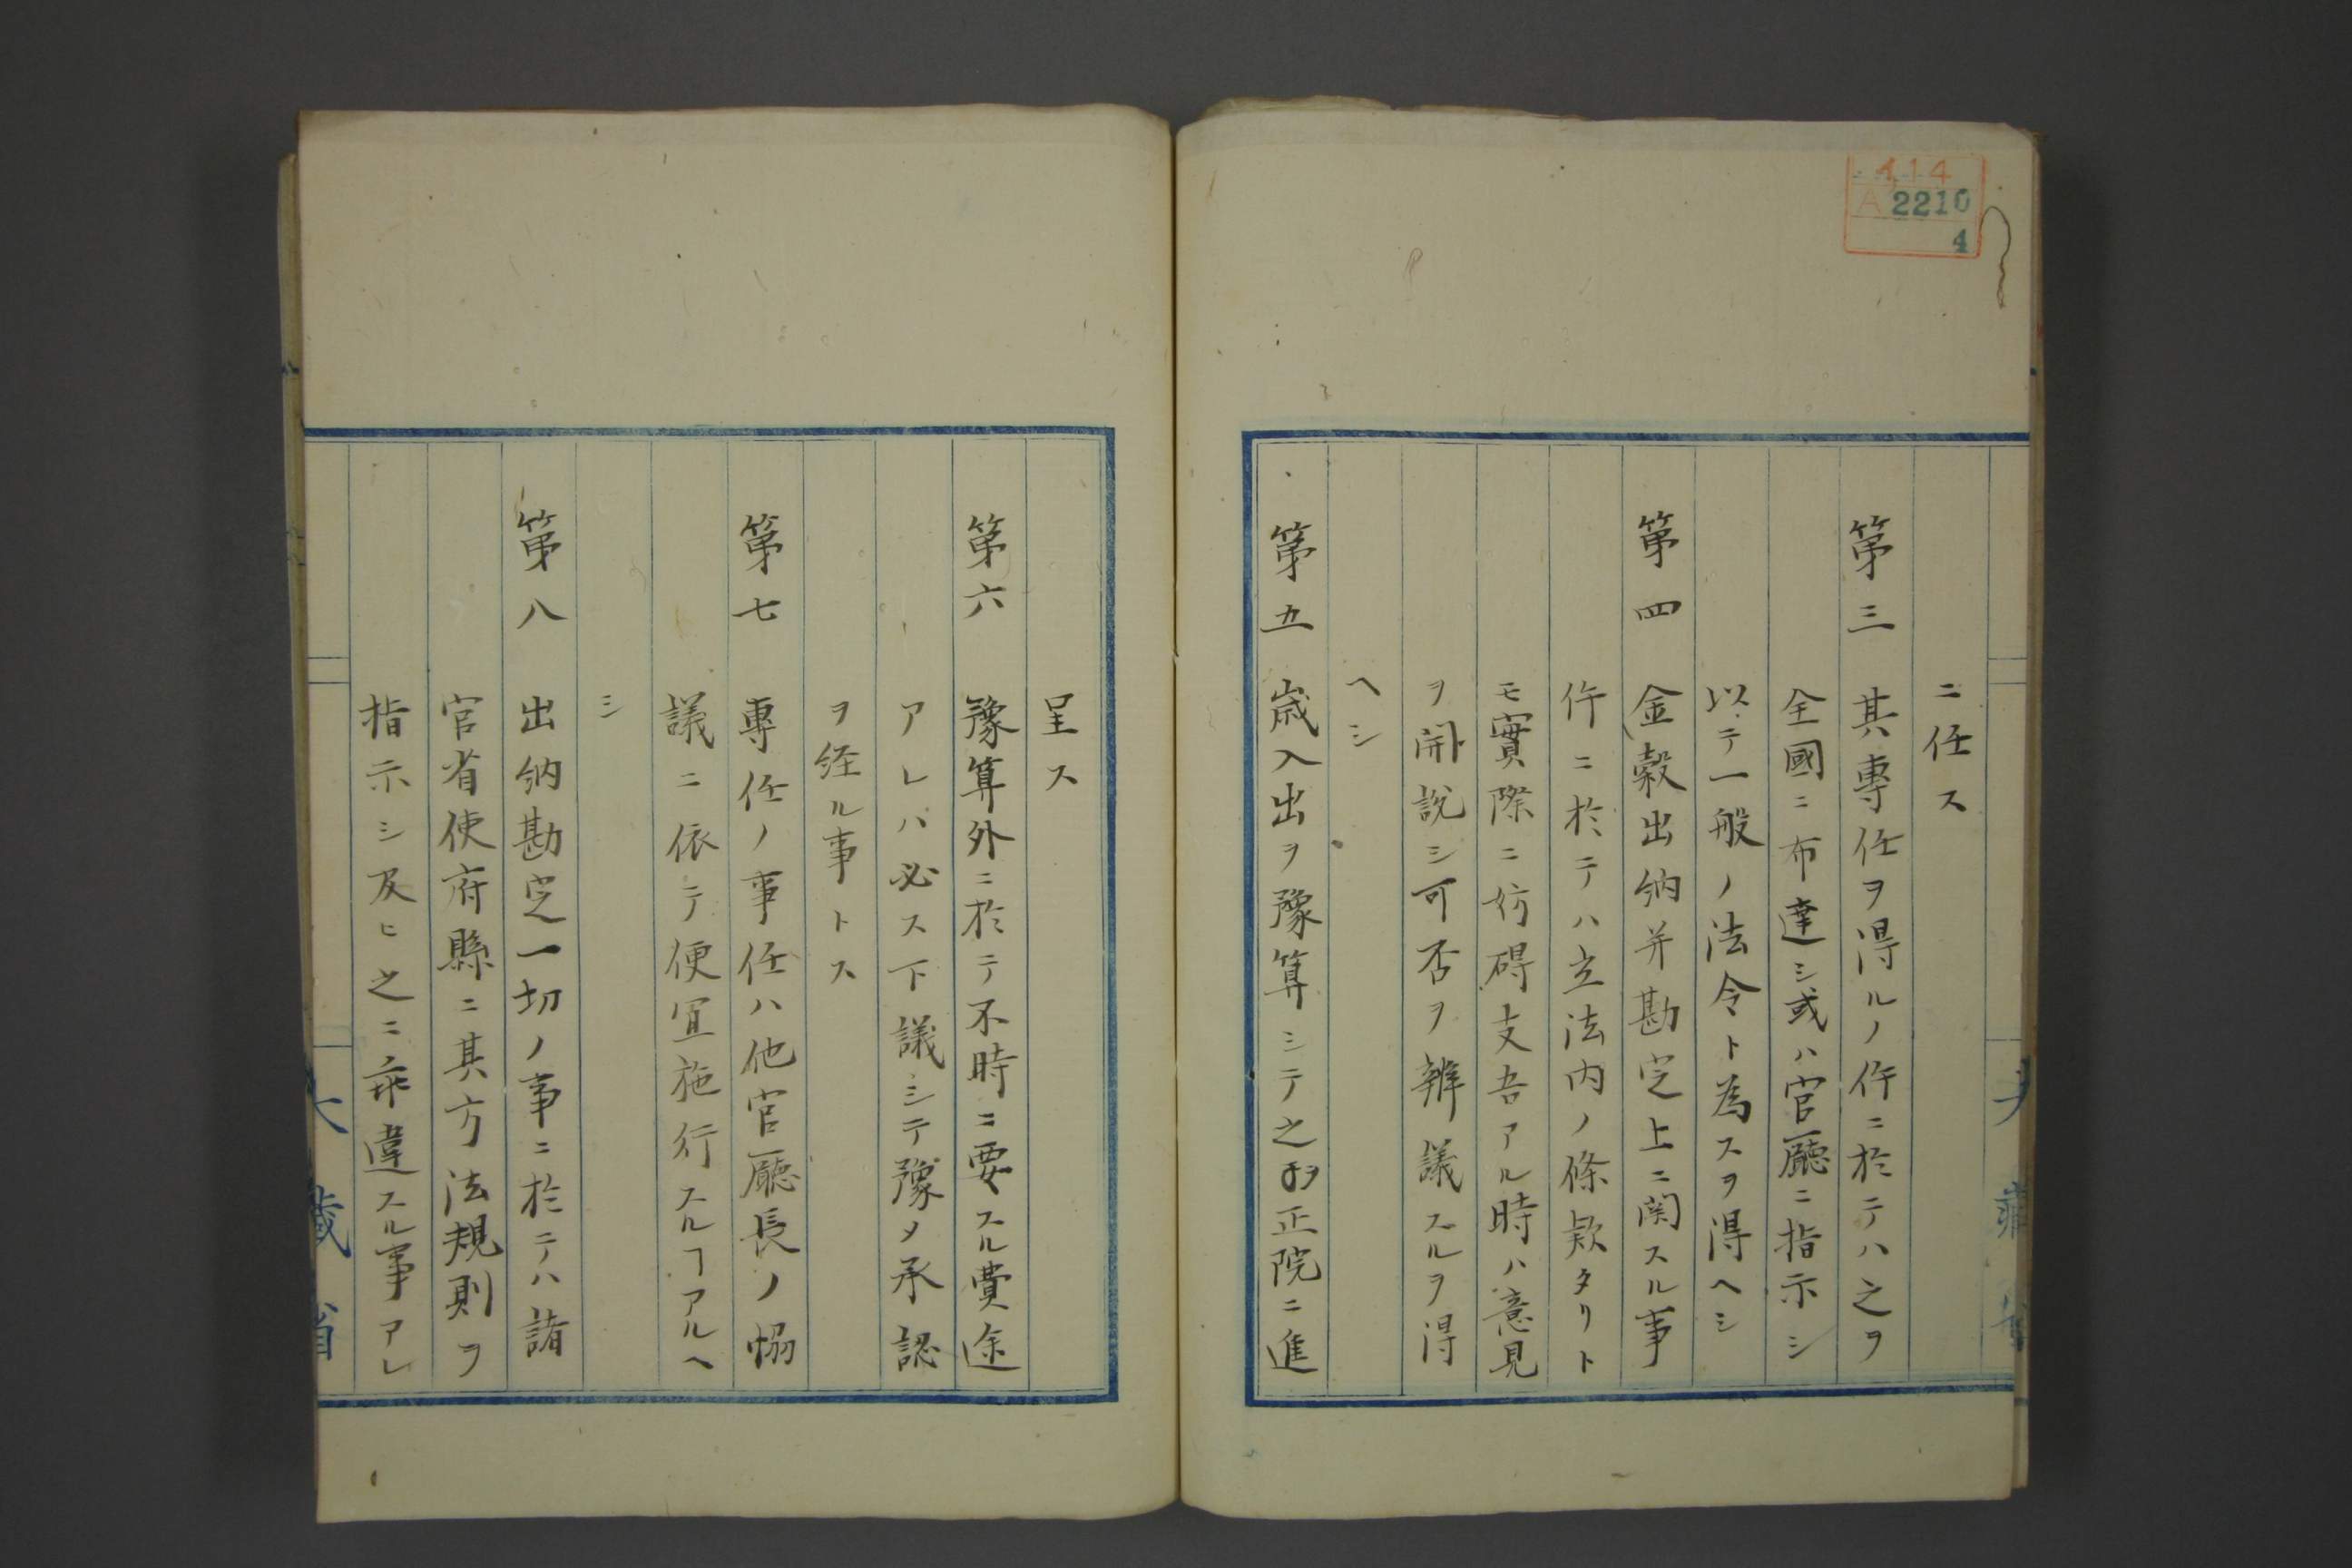 イ14
A2210
4
ニ任ス
第三 其專任ヲ得ルノ件ニ於テハ之ヲ
全國ニ布達シ或ハ官廳ニ指示シ
以テ一般ノ法令ト為スヲ得ヘシ
第四 金穀出納并勘定上ニ関スル事
件ニ於テハ立法内ノ條欵タリト
モ實際ニ妨碍支吾アル時ハ意見
ヲ開說シ可否ヲ辨議スルヲ得
ヘシ
第五 歳入出ヲ豫算シテ之ヲ正院ニ進
呈ス
第六 豫算外ニ於テ不時ニ要スル費途
アレハ必ス下議シテ豫メ承認
ヲ経ル事トス
第七 專任ノ事任ハ他官廳長ノ恊
議ニ依テ便宜施行スルヿアルヘ
シ
第八 出納勘定一切ノ事ニ於テハ諸
官省使府縣ニ其方法規則ヲ
指示シ及ヒ之ニ乖違スル事アレ
大藏省